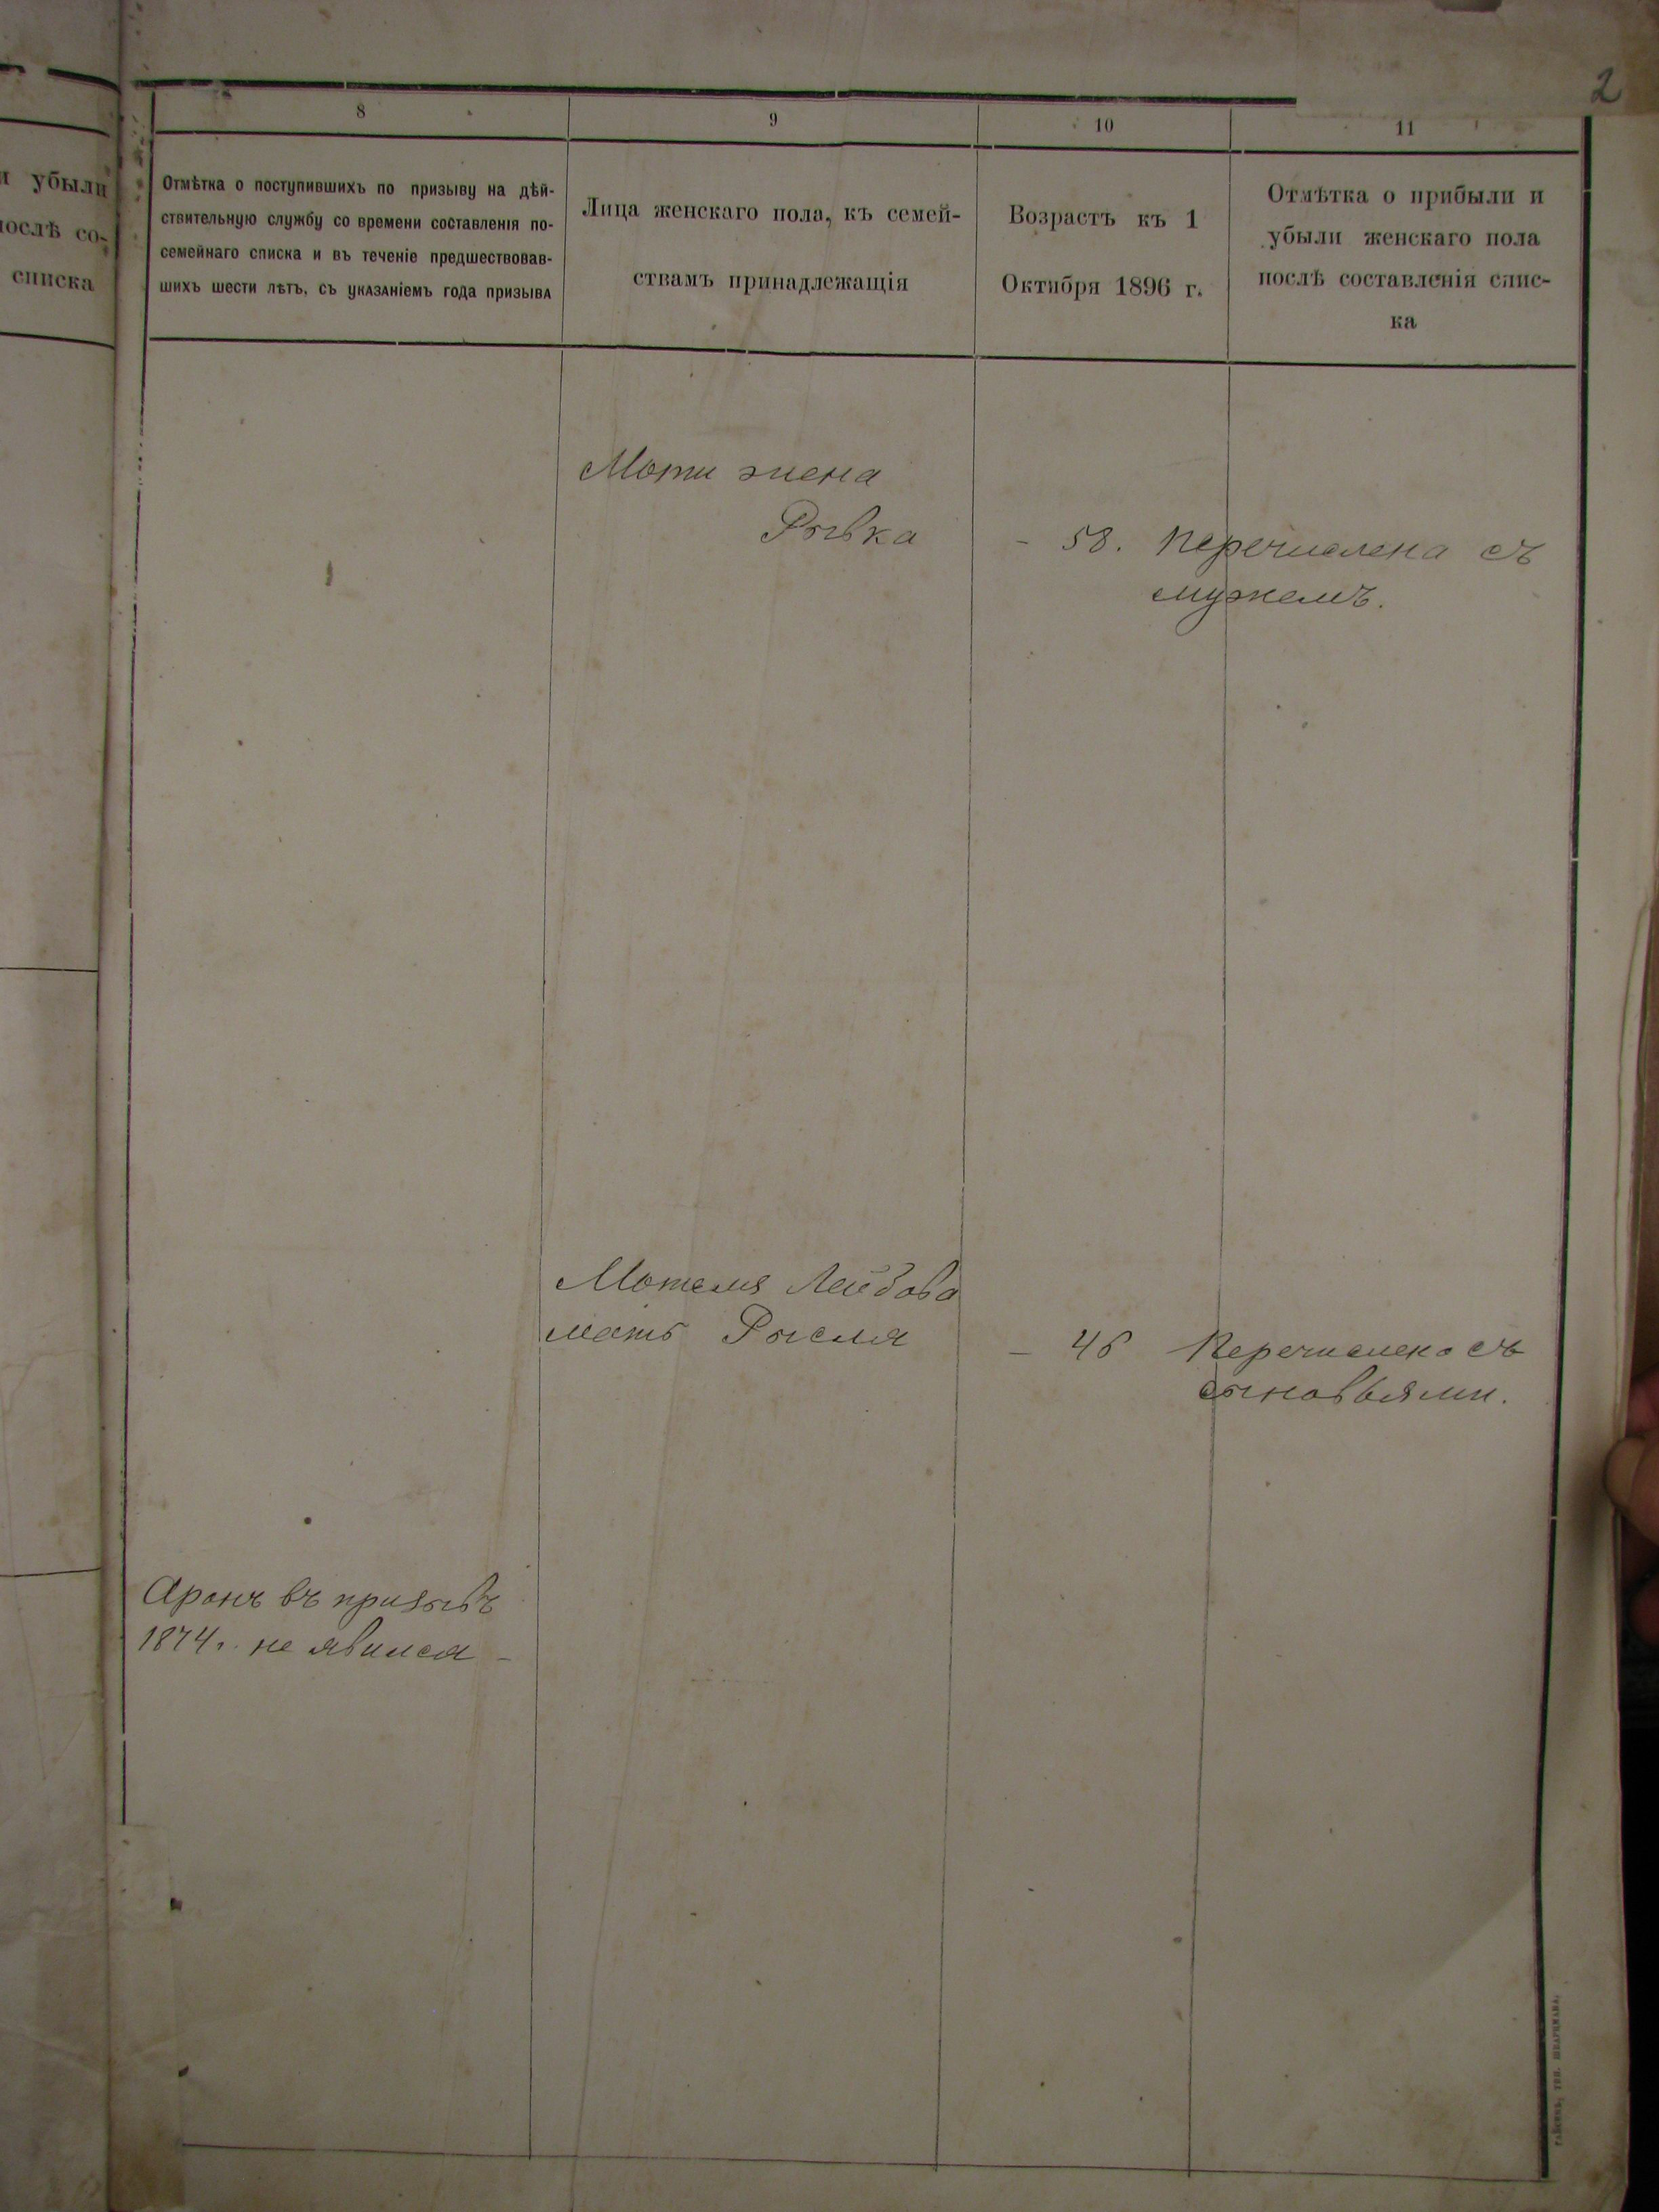 2
и убыли
послѣ со-
списка
8
9
10
11
Отмѣтка о поступившихъ по призыву на дѣй-
ствительную службу со времени составленія по-
семейнаго списка и въ теченіе предшествовав-
шихъ шести лѣтъ, съ указаніемъ года призыва
Лица женскаго пола, къ семей-
ствамъ принадлежащія
Возрастъ къ 1
Октября 1896 г.
Отмѣтка о прибыли и
убыли женскаго пола
послѣ составленія спис-
ка
Моти жена
Рывка
- 58.
перечислена съ
мужемъ.
Мотеля Лейбова
мать Рысля
- 46
Перечислена съ
сыновьями.
Аронъ въ призывъ
1874 г. не явился -
тип. Шварцмана.